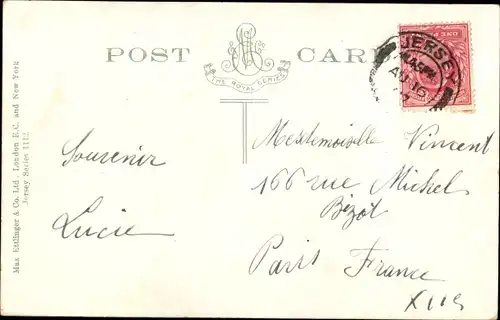 POST CARD
THE ROYAL SERIES
ONE P
JERSEY
AU 16
Max Ettlinger & Co. Ltd., London E.C. and New York
Jersey Series 1112
Souvenir
Lucie
Mesdemoiselle Vincent
166 rue Michel
Bizot
Paris France
XIIe